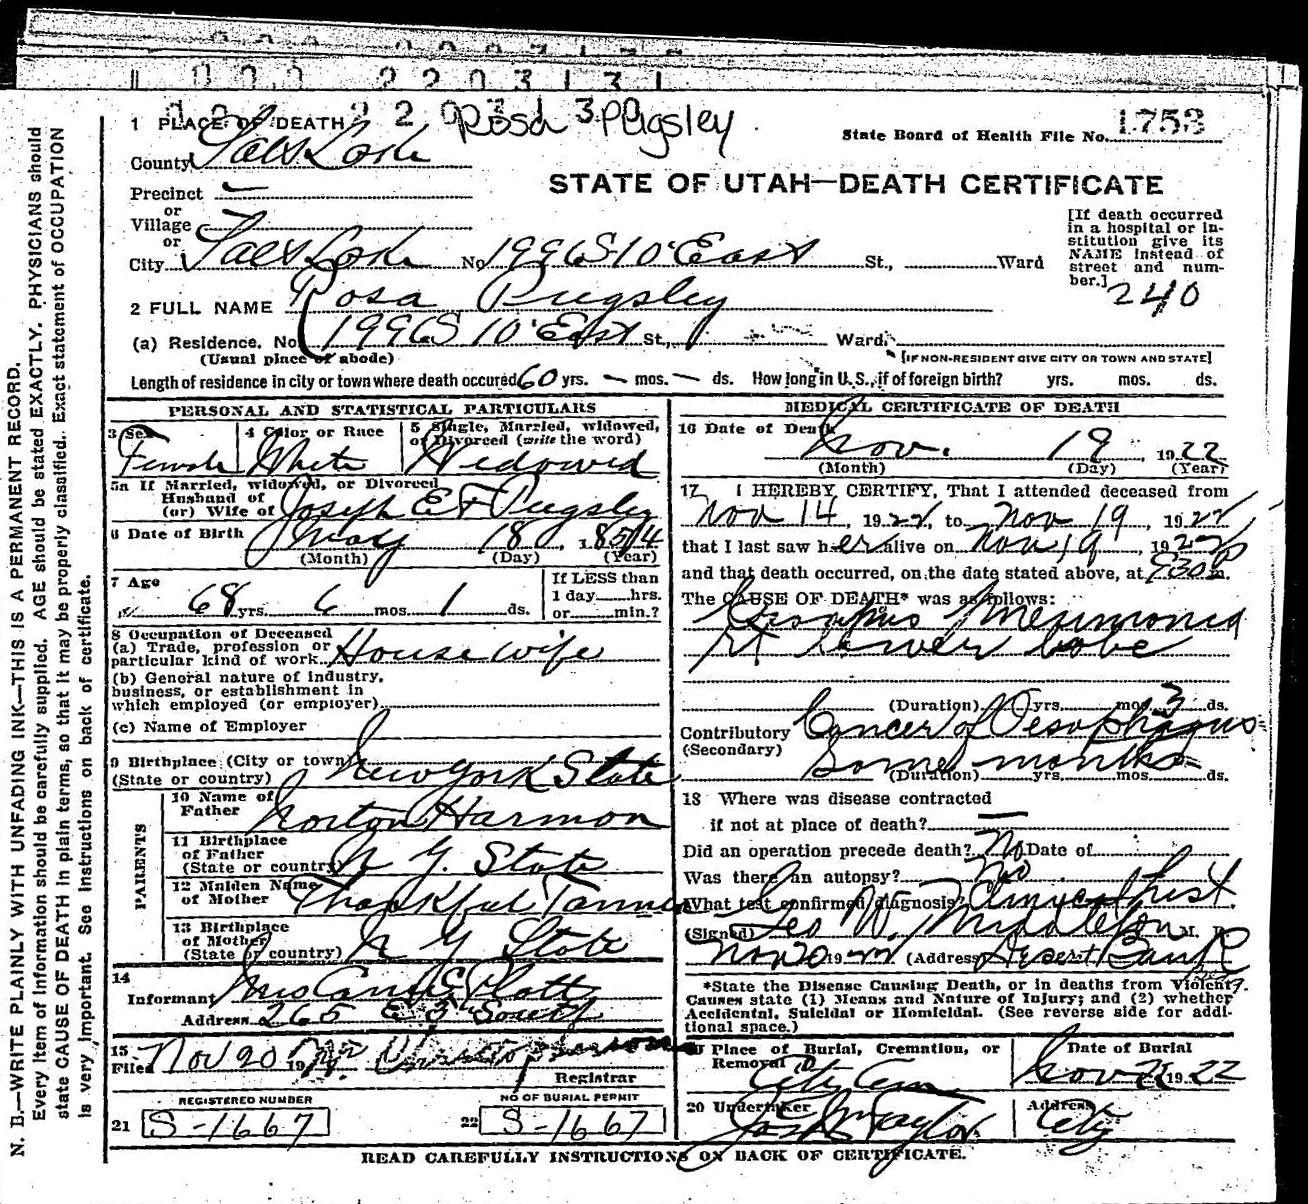 Rosa Pugsley
1 PLACE OF DEATH
State Board of Health File No. 1753
County Salt Lake
STATE OF UTAH—DEATH CERTIFICATE
Precinct —
or
Village
or
City Salt Lake No 1996 S 10' East St., Ward
[If death occurred
in a hospital or in-
stitution give its
NAME instead of
street and num-
ber.]
240
2 FULL NAME Rosa Pugsley
(a) Residence. No 1996 S 10' East St., Ward.
(Usual place of abode) [IF NON-RESIDENT GIVE CITY OR TOWN AND STATE]
Length of residence in city or town where death occured 60 yrs. — mos. — ds. How long in U. S., if of foreign birth? yrs. mos. ds.
PERSONAL AND STATISTICAL PARTICULARS
3 Sex 4 Color or Race 5 Single, Married, widowed,
or Divorced (write the word)
Female White Widowed
5a If Married, widowed, or Divorced
Husband of
(or) Wife of Joseph E F Pugsley
6 Date of Birth May 18 1854
(Month) (Day) (Year)
7 Age 68 yrs. 6 mos. 1 ds.
If LESS than
1 day hrs.
or min.?
8 Occupation of Deceased
(a) Trade, profession or
particular kind of work House wife
(b) General nature of industry,
business, or establishment in
which employed (or employer)
(c) Name of Employer
9 Birthplace (City or town)
(State or country) New York State
PARENTS
10 Name of
Father Norton Harmon
11 Birthplace
of Father
(State or country) N Y. State
12 Maiden Name
of Mother Thankful Tanner
13 Birthplace
of Mother
(State or country) N Y State
14
Informant
Address 265 E 5th South
15
Filed Nov 20 19
Registrar
REGISTERED NUMBER
21 S-1667
NO OF BURIAL PERMIT
22 S-1667
MEDICAL CERTIFICATE OF DEATH
16 Date of Death Nov. 19, 1922
(Month) (Day) (Year)
17 I HEREBY CERTIFY, That I attended deceased from
Nov 14, 1922, to Nov 19, 1922
that I last saw her alive on Nov 19, 1922
and that death occurred, on the date stated above, at 930 P m.
The CAUSE OF DEATH* was as follows:
Pneumonia
Rt lower lobe
(Duration) yrs. mos. 3 ds.
Contributory Cancer of Oesophagus
(Secondary)
Some months
(Duration) yrs. mos. ds.
18 Where was disease contracted
if not at place of death? —
Did an operation precede death? No Date of
Was there an autopsy? No
What test confirmed diagnosis?
(Signed) Geo W. Middleton M. D.
Nov 20 1922 (Address) Deseret Bank
*State the Disease Causing Death, or in deaths from Violent
Causes state (1) Means and Nature of Injury; and (2) whether
Accidental, Suicidal or Homicidal. (See reverse side for addi-
tional space.)
19 Place of Burial, Cremation, or
Removal City Cem
Date of Burial
Nov 1922
20 Undertaker Taylor
Address City
READ CAREFULLY INSTRUCTIONS ON BACK OF CERTIFICATE.
N. B.—WRITE PLAINLY WITH UNFADING INK—THIS IS A PERMANENT RECORD.
Every item of information should be carefully supplied. AGE should be stated EXACTLY. PHYSICIANS should
state CAUSE OF DEATH in plain terms, so that it may be properly classified. Exact statement of OCCUPATION
is very important. See instructions on back of certificate.